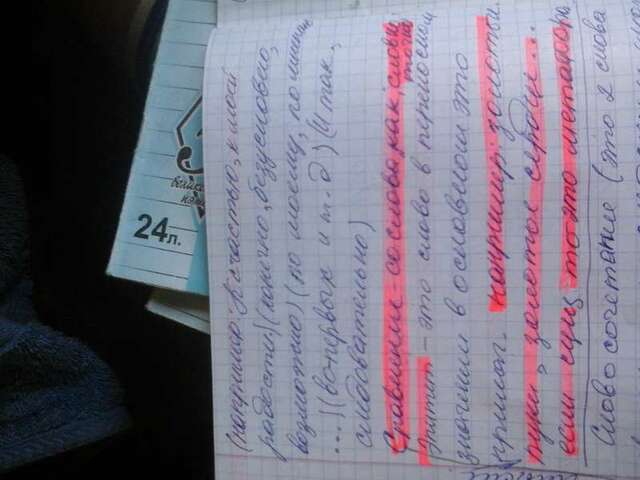 24 л.
(например: К счастью, к моей
радости) (конечно, безусловно,
возможно) (по моему, по мнению
...) (во-первых и т.д) (И так,
следовательно)
Сравнение - со слова как, словно
точно
Эпитит - это слово в переносном
значении в основном это
прилаг. например: золотые
руки, золотое сердце...
если сущ то это метафора
Слово сочетание (это 2 слова